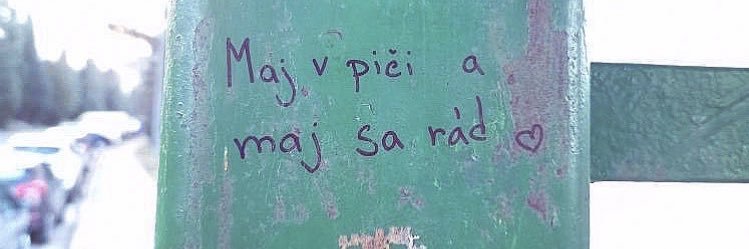 Maj v piči a
maj sa rád ♡